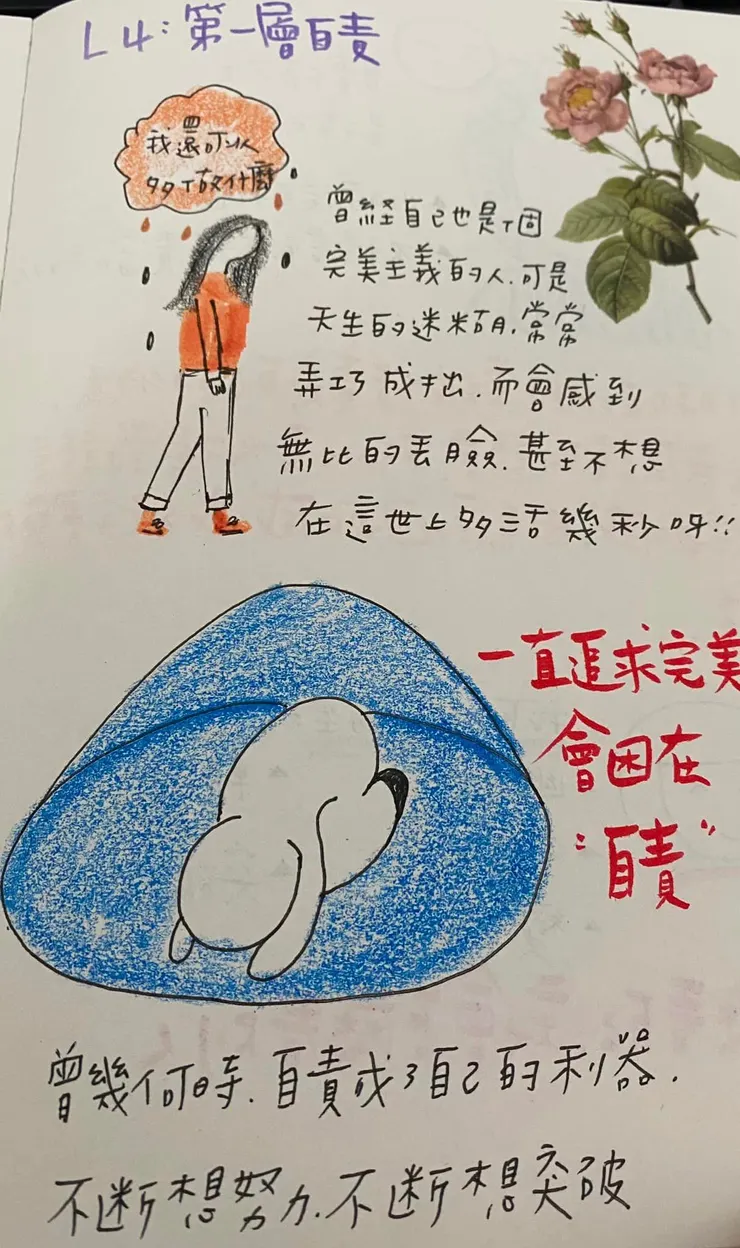 L4:第一層自責
我還可以
多做什麼
曾経自己也是個
完美主義的人.可是
天生的迷糊,常常
弄巧成拙.而會感到
無比的丟臉.甚至不想
在這世上多活幾秒呀!!
一直追求完美
會困在
"自責"
曾幾何時.自責成了自己的利器.
不斷想努力.不斷想突破